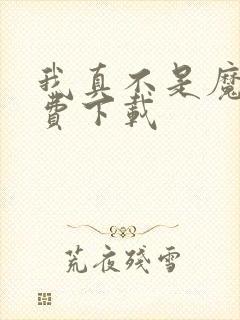 我真不是魔
費下載
荒夜殘雪